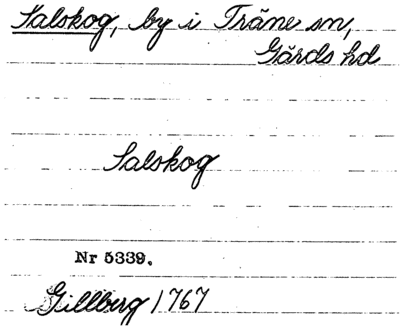 Salskog, by i Träne sn,
Gärds hd
Salskog
Nr 5339.
Gillberg 1767